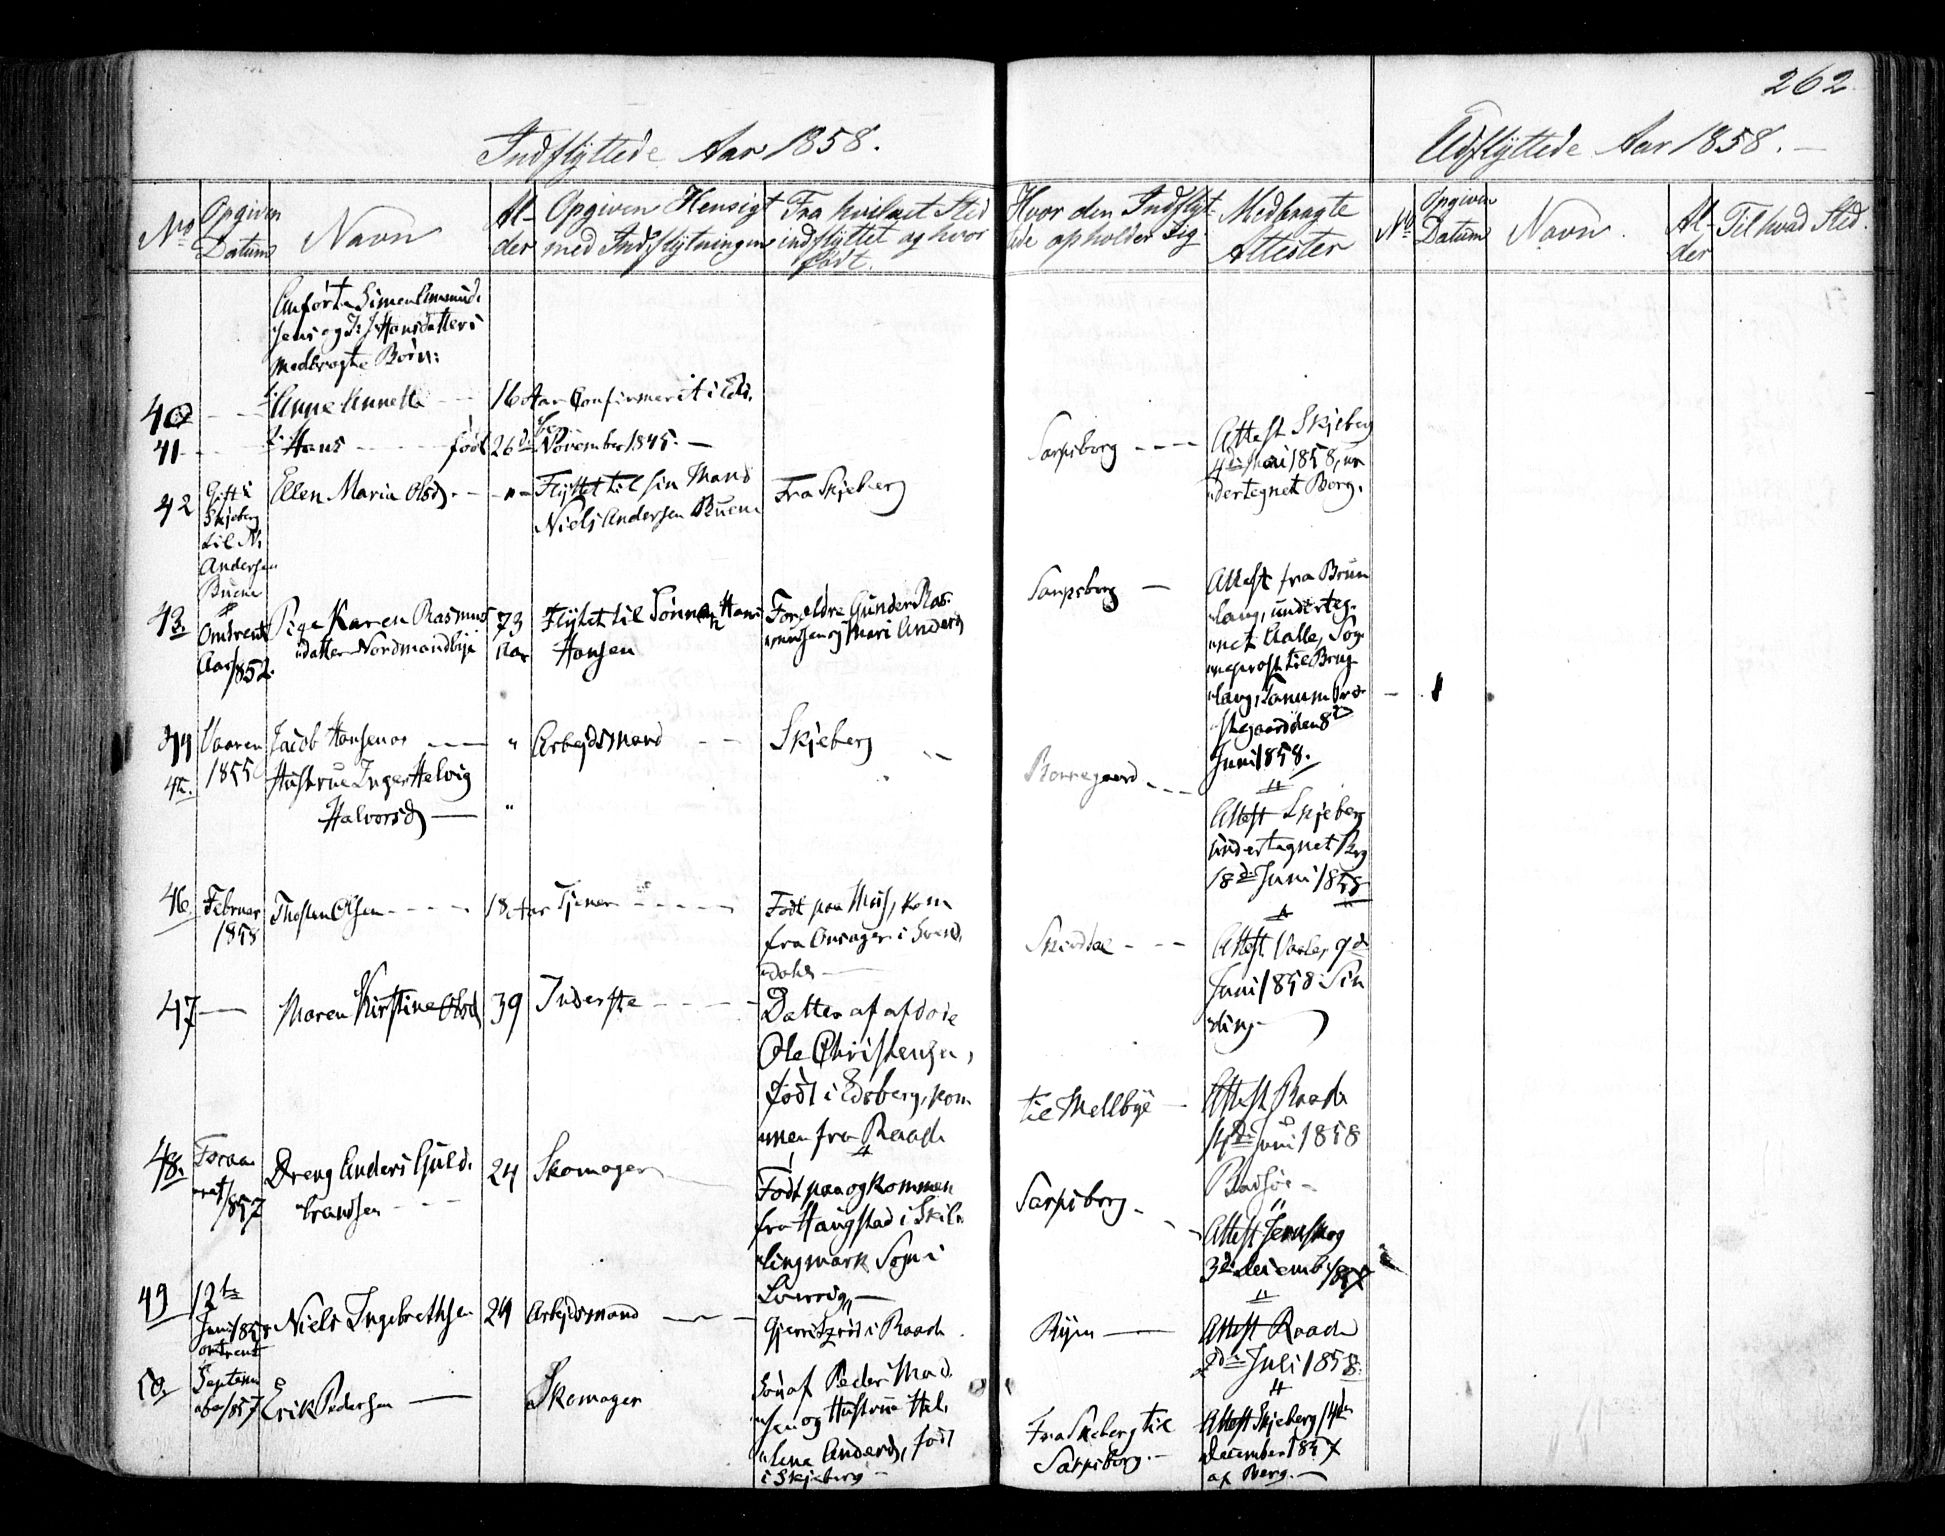 262
Indflyttede Aar 1858.
Udflyttede Aar 1858.
No
Opgiven Datum
Navn
Alder
Opgiven Hensigt med Indflytningen
Fra hvilket Sted indflyttet og hvor født.
Hvor den Indflyttede opholder sig.
Medbragte Attester
No
Opgiven Datum
Navn.
Alder
Til hvad Sted.
Anførte Simen Amund-
sens og Hansdatters
medbragte Børn:
40 - - 1, Anne Annette - - 16 Aar Confirmeret i
41 - - 2, Hans - - - født 26de November 1845. —
Sarpsborg - - -
Attest Skjeberg
4de Mai 1858, un-
dertegnet Berg.
42
Gift i
Skjeberg
til N.
Andersen
Buene
Ellen Maria Olsd. - - " -
Flyttet til sin Mand
Niels Andersen Buene
Fra Skjeberg
Sarpsborg —
43.
Omtrent
Aar 1852.
Pige Karen Rasmus-
datter Nordmandbye
73
Aar
Flyttet til Sønnen Hans
Hansen
Forældre Gunder Ras-
mussen og Mari Andersd
Attest fra Brun-
lang, underteg-
net Aalle, Sog-
neprost til Brug-
lang, Tanum Præ-
stegaard den 8de
Juni 1858.
44
Vaaren
1855
Jacob Hansen og — "
Arbejdsmand - -
Skjeberg "
45.
Hustrue Inger Helvig
Halvorsd — "
Borregaard - - -
Attest Skjeberg
undertegnet Berg
18de Juni 1858
46.
Februar
1858
Thosten Olsen - - - -
18 Aar Tjener - - - - -
Født paa Moss, kom
fra Onsager i Svend-
dahls —
- - -
Attest Vaaler 9de
Juni 1858 Sin-
ding —
47 —
Maren Kirstine Olsd
39
Inderste - - - -
Datter af afdøde
Ole Christensen,
født i Edsberg, kom-
men fra Raade
til Mellbye —
Attest Raade
14de Juni 1858
48.
Foraa-
ret 1857
Dreng Anders Guld-
brandsen - - -
24
Skomager
Født paa og kommen
fra Haugstad i Skil-
lingmark Sogn i
Sarpsborg. - -
Attest Jernskog
3de Decemb 1857
49
12te
Juni 1858
omtrent
Niels Ingebrethsen
24
Arbejdsmand — — —
i Raade.
Ryen —
Attest Raade
2de Juli 1858.
50.
Septem-
ber 1857
Erik Pedersen —
Skomager
Søn af Peder Mad-
sen og Hustrue Hel-
lena Andersd, født
i Skjeberg —
Fra Skeberg til
Sarpsborg. —
Attest Skjeberg 14de
December 1857
af Berg. —